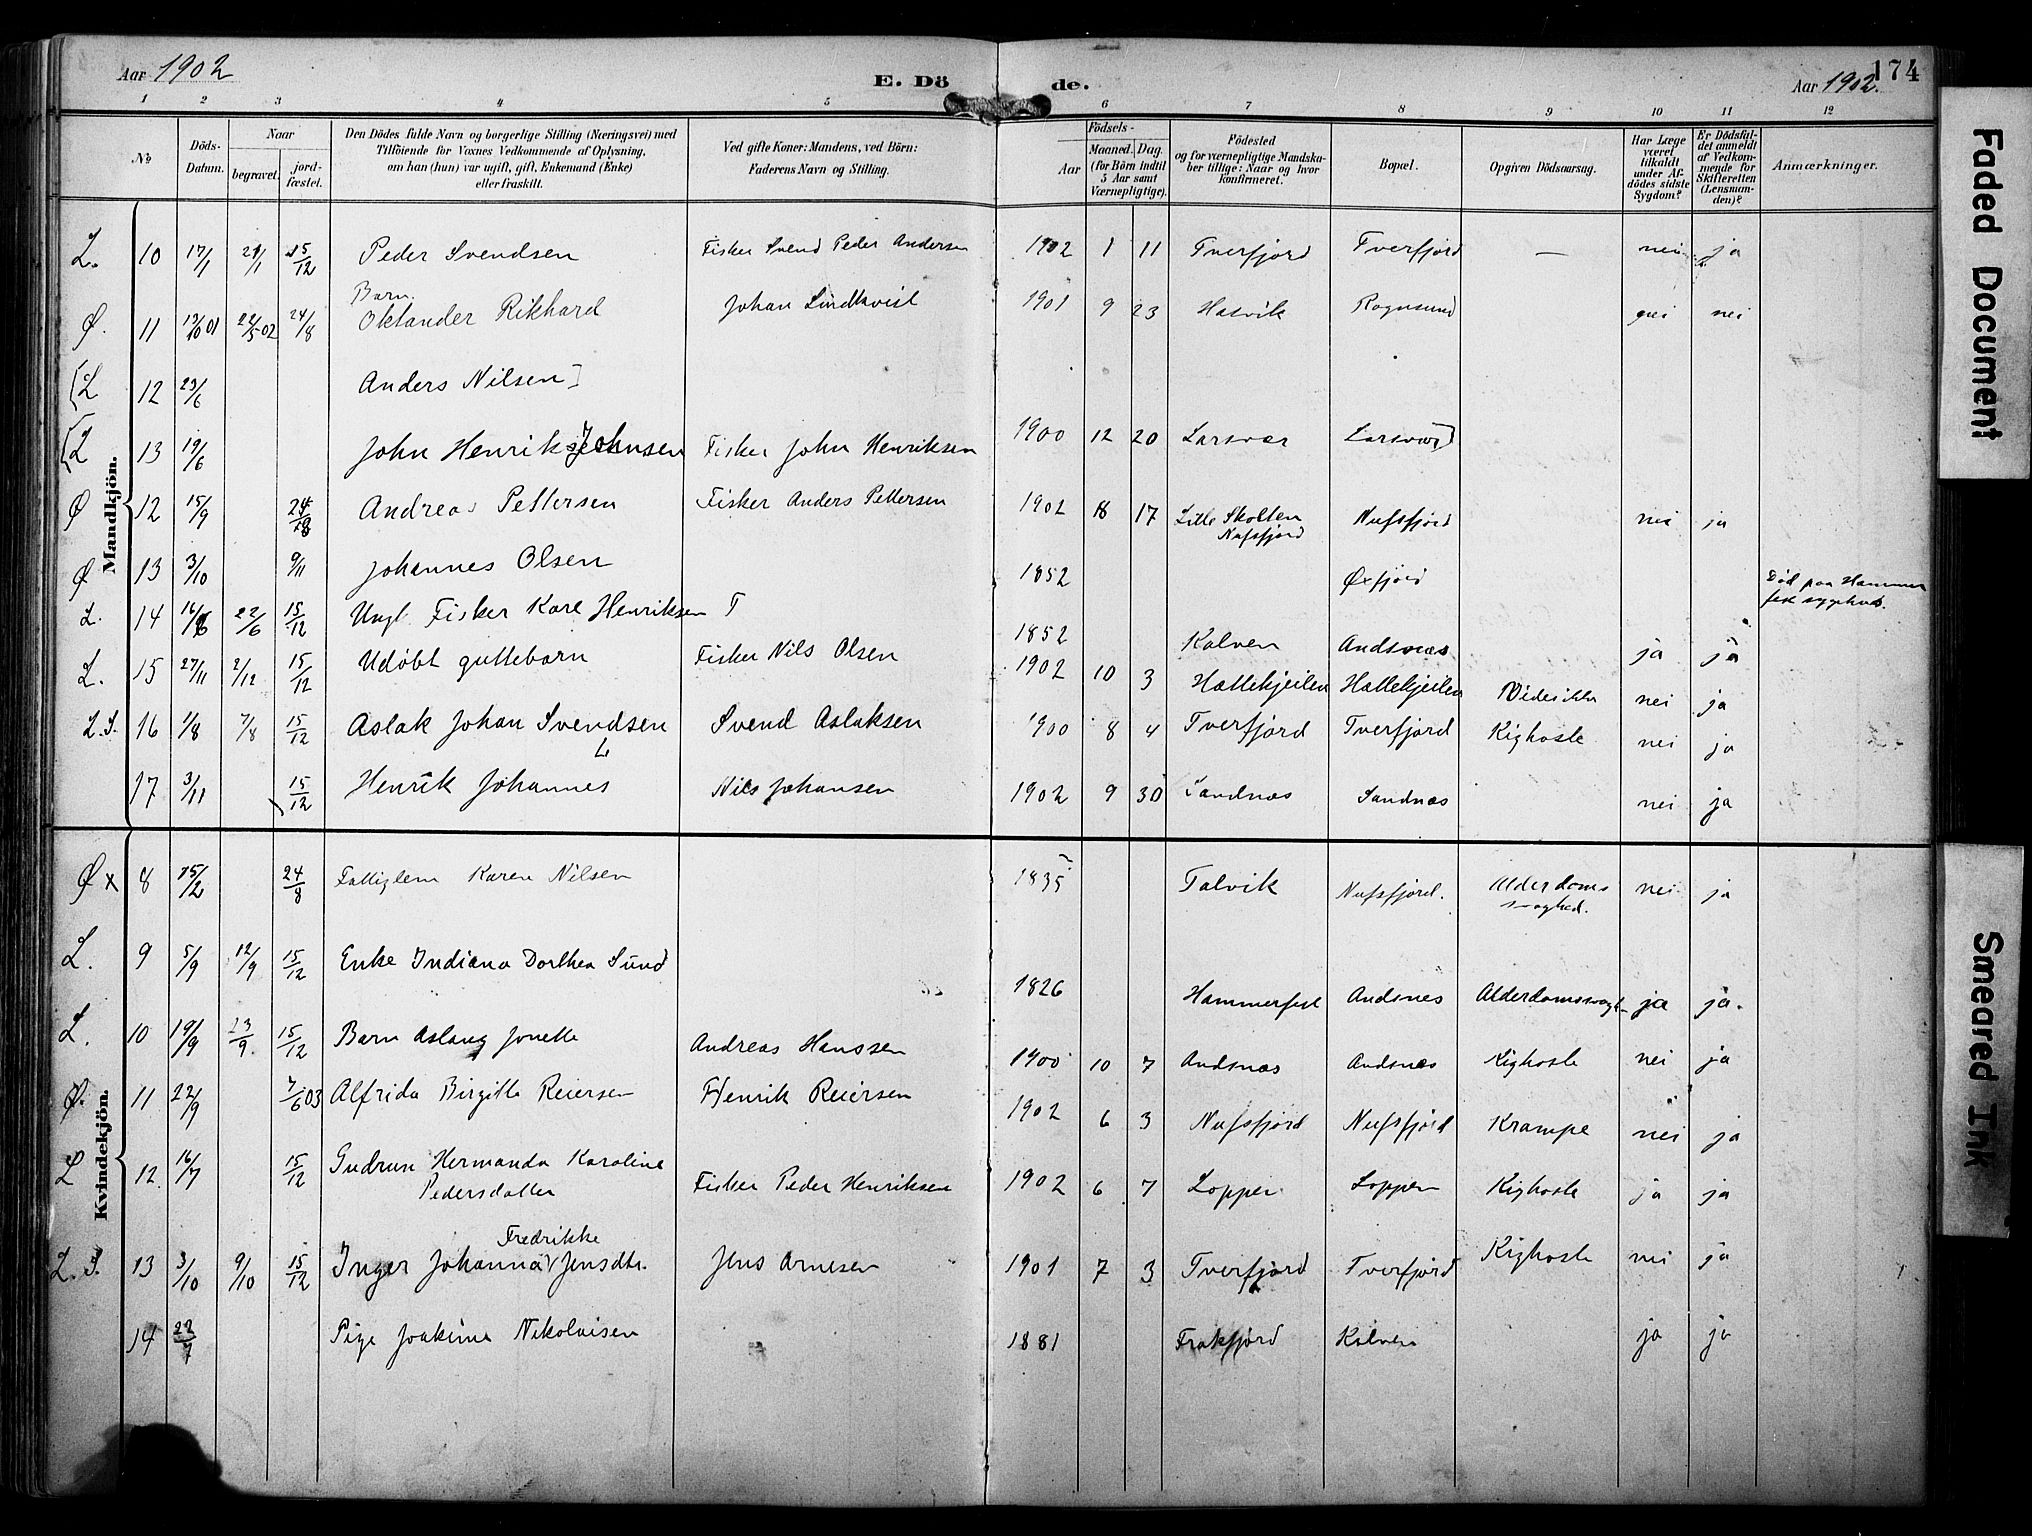 Aar 1902
E. Dö de.
Aar 1902.
174
1 2 3 4 5 6 7 8 9 10 11 12
No
Döds-Datum.
Naar
begravet.
jord-fæstet.
Den Dödes fulde Navn og borgerlige Stilling (Næringsvei) med
Tilföiende for Voxnes Vedkommende af Oplysning,
om han (hun) var ugift, gift, Enkemand (Enke)
eller fraskilt.
Ved gifte Koner: Mandens, ved Börn:
Faderens Navn og Stilling.
Födsels-
Aar
Maaned. Dag.
(for Börn indtil
5 Aar samt
Værnepligtige).
Födested
og for værnepligtige Mandska-
ber tillige: Naar og hvor
konfirmeret.
Bopæl.
Opgiven Dödsaarsag.
Har Læge
været
tilkaldt
under Af-
dödes sidste
Sygdom?
Er Dödsfal-
det anmeldt
af Vedkom-
mende for
Skifteretten
(Lensman-
den)?
Anmærkninger.
Mandkjön.
L. 10 17/1 29/1 15/12 Peder Svendsen Fisker Svend Peder Andersen 1902 1 11 Tverfjord Tverfjord — nei ja
Barn
Ø. 11 13/10 01 22/5 02 24/8 Oktander Rikhard Johan Lindkvist 1901 9 23 Hasvik Rognsund nei nei
[L 12 23/6 Anders Nilsen]
[L 13 19/6 John Henrik Johnsen Fisker John Henriksen 1900 12 20 Larsvær Larsvær]
Ø 12 15/9 24/8 Andreas Pettersen Fisker Anders Pettersen 1902 8 17 Lille Skolten Nufsfjord Nufsfjord nei ja
Ø 13 3/10 9/11 Johannes Olsen 1852 Øxfjord Død paa Hammer
fest sygehus.
L. 14 16/6 22/6 15/12 Ungk. Fisker Kare Henriksen 1852 Kalven Andsnæs ja ja
L. 15 27/11 2/12 15/12 Udøbt guttebarn Fisker Nils Olsen 1902 10 3 Hattekjeilen Hattekjeilen Vides ikke nei ja
L.S. 16 1/8 7/8 15/12 Aslak Johan Svendsen Svend Aslaksen 1900 8 4 Tverfjord Tverfjord Kighoste nei ja
17 3/11 15/12 Henrik Johannes Nils Johansen 1902 9 30 Sandnæs Sandnæs nei ja
Kvindekjön.
Ø x 8 15/2 24/8 Fattiglem Karen Nilsen 1835 Talvik Nufsfjord. Alderdoms
svaghed. nei ja
L. 9 5/9 12/9 15/12 Enke Indiana Dorthea Sund 1826 Hammerfest Andsnes Alderdomssvagh- ja ja.
L. 10 19/9 23/9. 15/12 Barn Aslaug Jonette Andreas Hanssen 1900 10 7 Andsnæs Andsnæs Kighoste nei ja
Ø. 11 22/9 7/6 03 Alfrida Birgitte Reiersen Henrik Reiersen 1902 6 3 Nufsfjord Nufsfjord Krampe nei ja
L 12. 16/7 15/12 Gudrun Hermanda Karoline
Pedersdatter Fisker Peder Henriksen 1902 6 7 Loppen Loppen Kighoste ja ja
Fredrikke
L.S. 13 3/10 9/10 15/12 Inger Johanna Jensdtr. Jens Arnesen 1901 7 3 Tverfjord Tverfjord Kighoste nei ja
14 22/7 Pige Joakime Nikolaisen 1881 Frakfjord Kalven ja ja
Faded Document
Smeared Ink